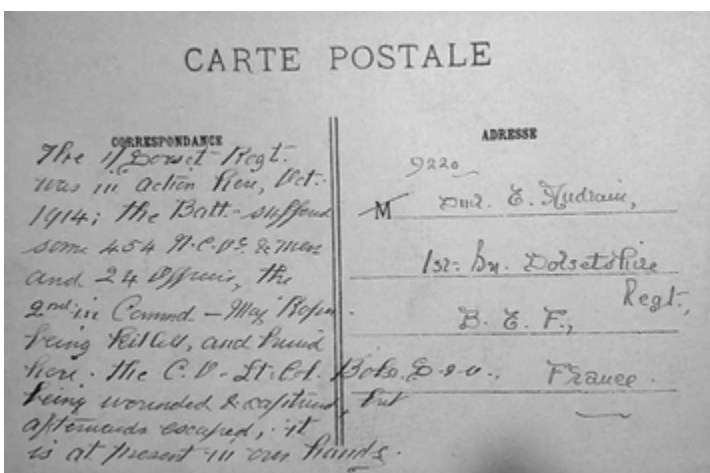 CARTE POSTALE
CORRESPONDANCE
The 1/Dorset Regt.
was in action here, Oct.
1914; the Batt. suffered
some 454 N.C.O's. & men
and 24 Officers, the
2nd in Command - Maj Roper
being killed, and buried
here. The C.O. - Lt. Col. Bols. D.S.O.,
being wounded & captured, but
afterwards escaped; it
is at present in our hands.
ADRESSE
9220
M Dmr. E. Audrain,
1st. Bn. Dorsetshire
Regt.,
B. E. F.,
France.